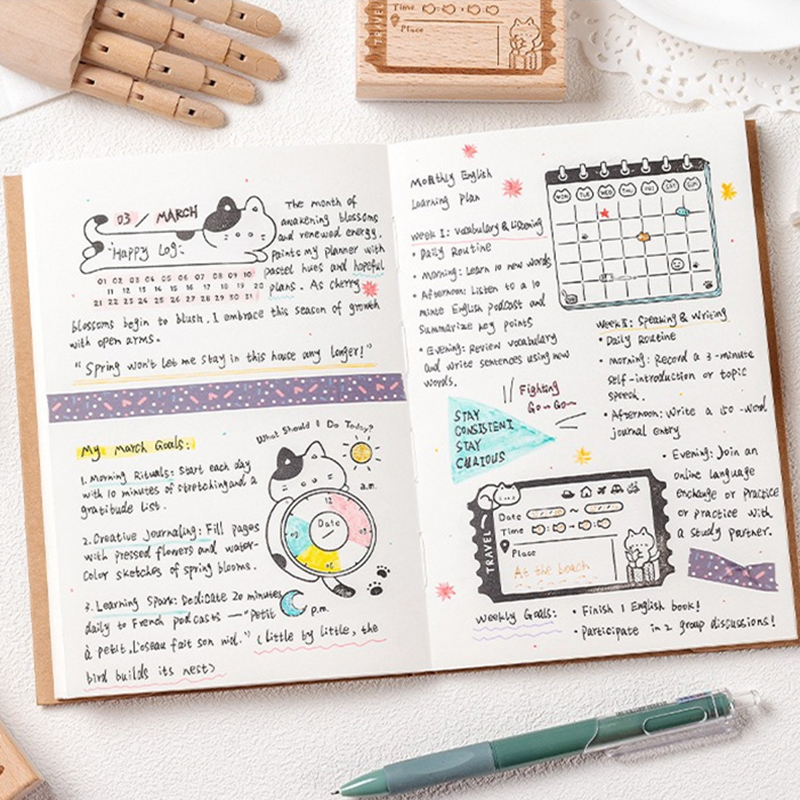 TRAVEL
Time
Place
03 / MARCH
"Happy Log"
01 02 03 04 05 06 07 08 09 10
11 12 13 14 15 16 17 18 19 20
21 22 23 24 25 26 27 28 29 30 31
The month of
awakening blossoms
and renewed energy.
Paints my planner with
pastel hues and hopeful
plans. As cherry
blossoms begin to blush, I embrace this season of growth
with open arms.
"Spring won't let me stay in this house any longer!"
My March Goals:
What Should I Do Today?
1. Morning Rituals: Start each day
with 10 minutes of stretching and a
gratitude list.
a.m.
12
Date
2. Creative Journaling: Fill pages
with pressed flowers and water-
color sketches of spring blooms.
3. Learning Spark: Dedicate 20 minutes
daily to French podcasts — "Petit
p.m.
à petit, l'oseau fait son nid." (little by little, the
bird builds its nest)
Monthly English
Learning Plan
MON TUE WED THU FRI SAT SUN
Week I: Vocabulary & Listening
• Daily Routine
• Morning: Learn 10 new words
• Afternoon: Listen to a 10
minte English podcast and
Summarize key points
• Evening: Review vocabulary
and write sentences using new
words.
Fighting
Go~Go~
STAY
CONSISTENT
STAY
CURIOUS
Week II: Speaking & Writing
• Daily Routine
• morning: Record a 3-minute
self-introduction or topic
speech.
• Afternoon: Write a 150-word
journal entry
• Evening: Join an
online language
enchange or practice
or practice with
a study partner.
TRAVEL
Date
Time
Place
At the beach
Weekly Goals: • Finish 1 English book!
• Participate in 2 group discussions!